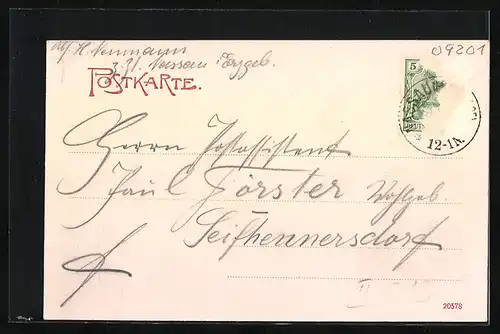 Abs. H. Neumann
z. Zt. Nassau i. Erzgeb.
09201
POSTKARTE.
5
12-1N.
Herrn Postassistent
Paul Förster Wohlgeb.
Seifhennersdorf
20578